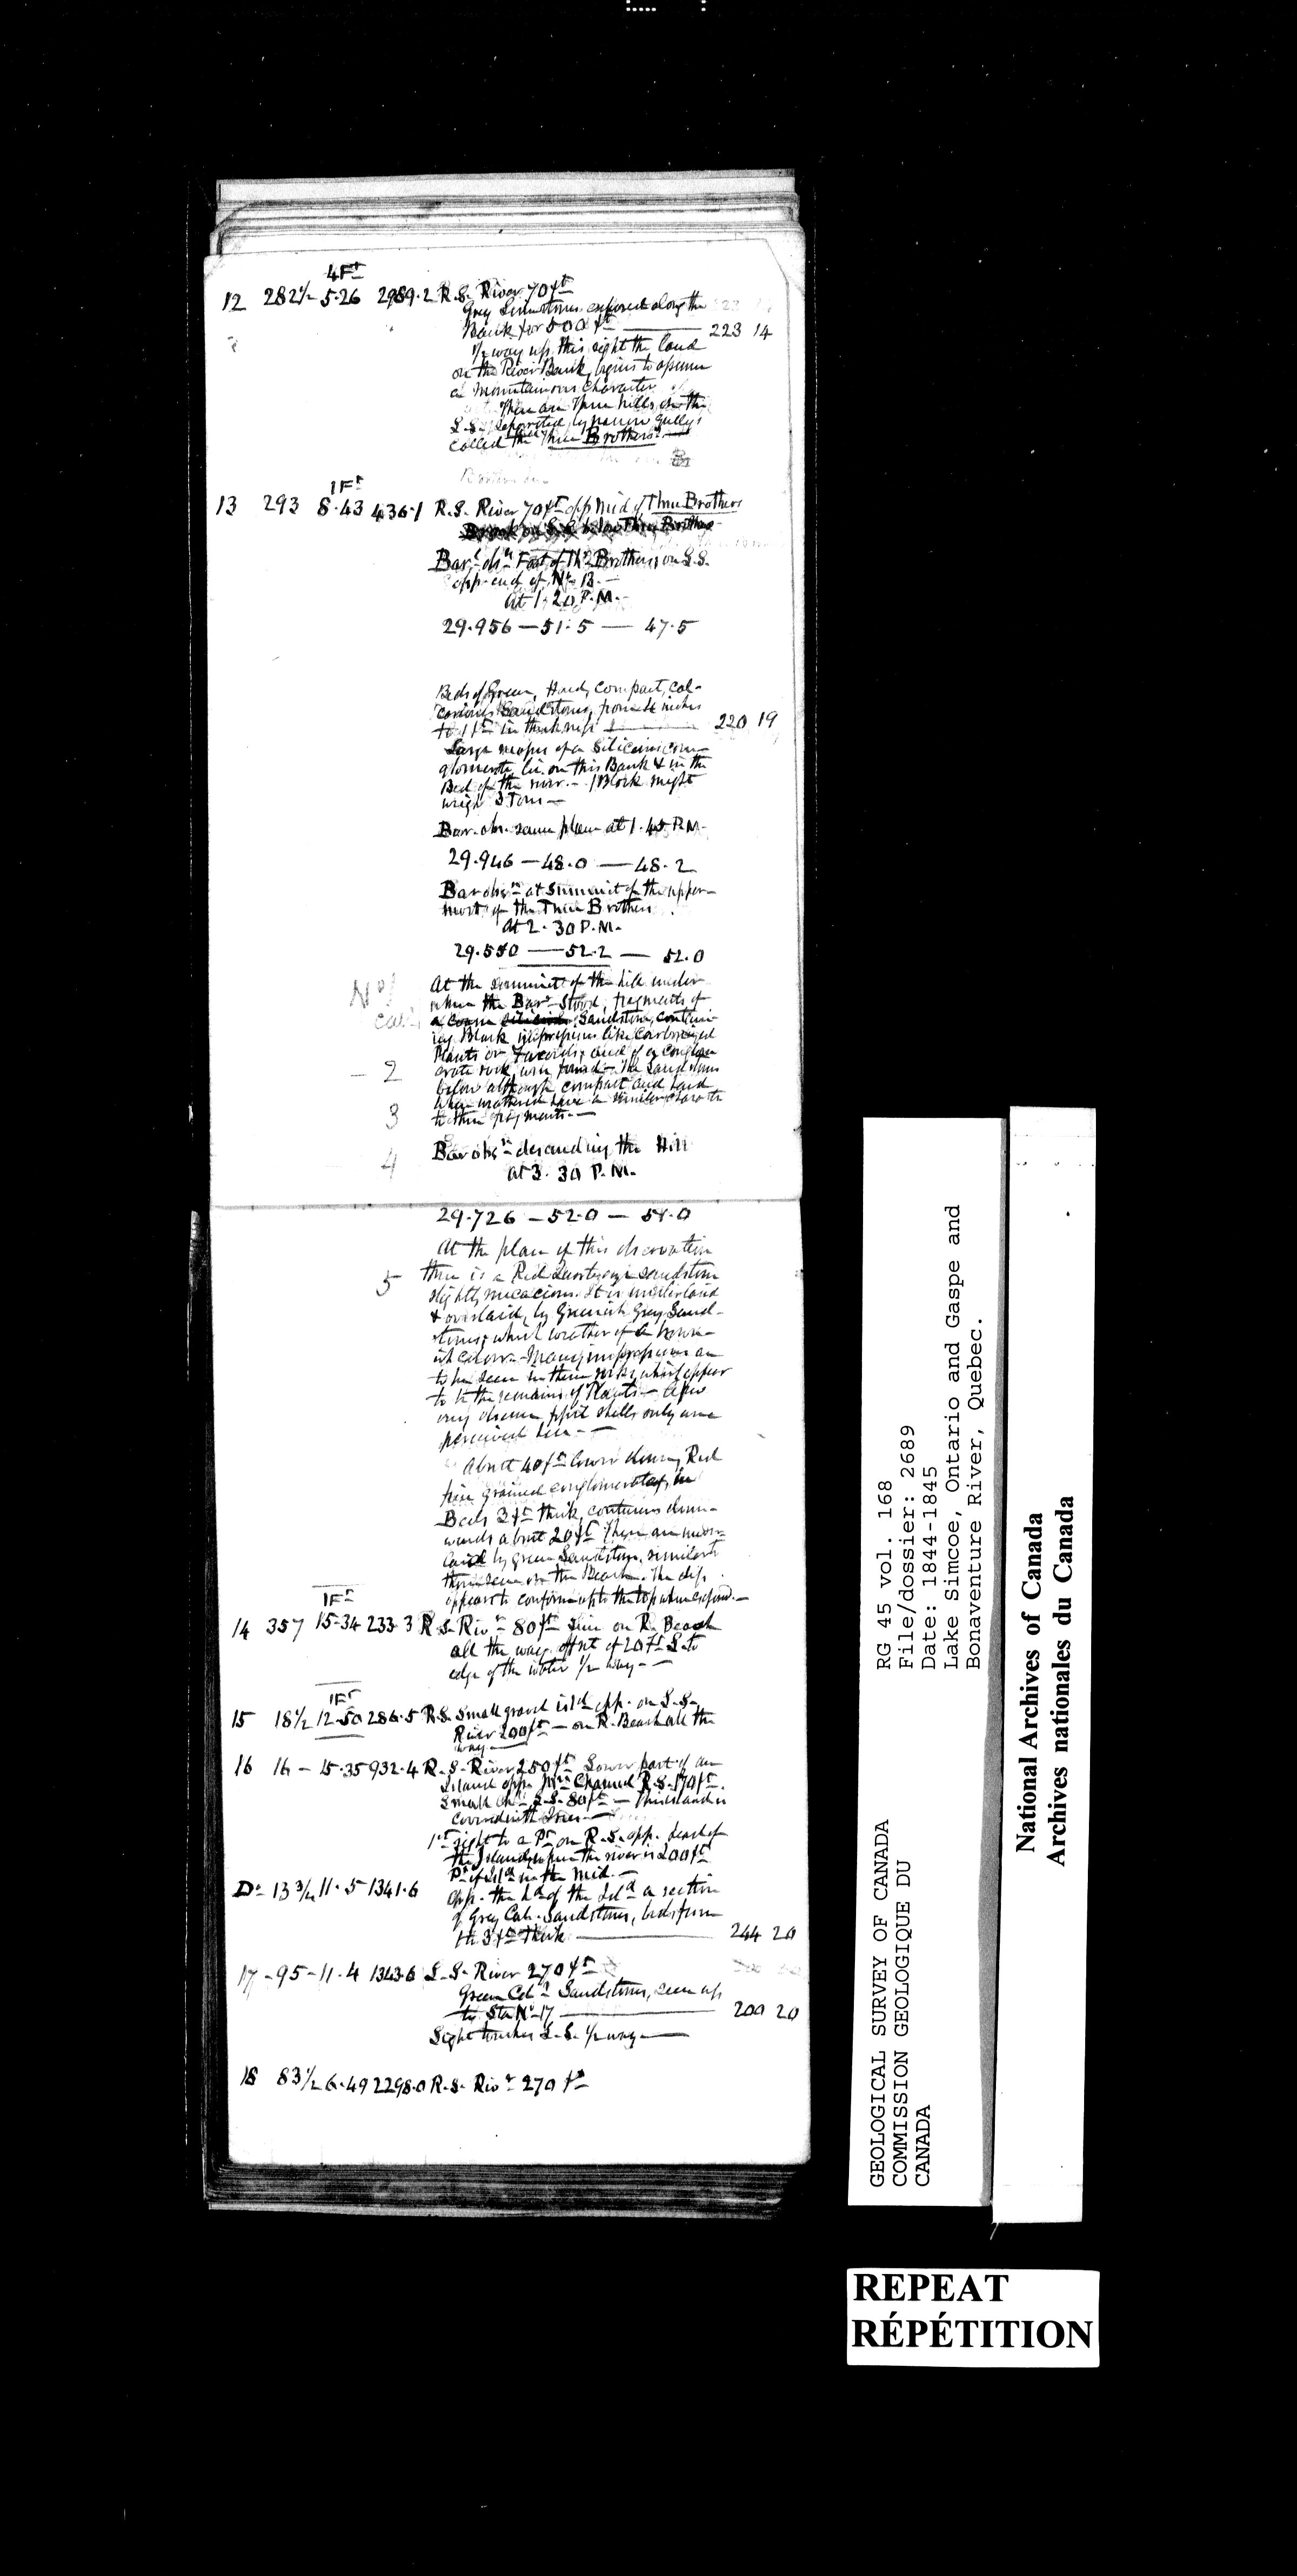 4 Ft
12 282½ 5·26 2989·2 R.S. River 70 ft
Grey Limestones exposed along the
Bank for 500 ft — 223 14
½ way up this sight the land
on the River Bank, begins to assume
a Mountainous Character
There are Three hills on the
S.S. separated by narrow Gullys
called the Three Brothers
1 Ft
13 293 8·43 436·1 R.S. River 70 ft opp Mid of Three Brothers
Brook on S.S. below Three Brothers
Bar. obsn Foot of the Brothers, on S.S.
opp. end of No 13.—
At 1·20 P.M.—
29.956 — 51·5 — 47.5
Beds of Green, Hard, Compact, Cal-
careous Sandstones, from 4 inches
to 1 ft in thickness — 220 19
Large masses of a Siliceous con-
glomerate lie on this Bank & in the
Bed of the river.— 1 Block might
weigh 3 Tons —
Bar. obs. same place at 1·45 P.M.
29.946 — 48.0 — 48·2
Bar obsn at Summit of the upper-
most of the Three Brothers
At 2·30 P.M.
29.550 — 52·2 — 52.0
No 1
At the summit of the hill under
where the Barr stood, fragments of
a coarse Sandstone, contain-
ing Black impressions like Carbonized
Plants or Fucoids, and of a Conglom-
2
erate rock were found — The Sandstones
below although compact and hard
when weathered have a similar character
3
to these fragments —
4
Bar obsn descending the Hill
at 3·30 P.M.
29.726 — 52.0 — 54.0
At the place of this observation
5
there is a Red Sandstone
slightly micaceous. It is underlaid
& overlaid, by Greenish Grey Sand-
stones, which weather of a brown-
ish colour — Many impressions are
to be seen in these rocks, which appear
to be the remains of Plants — A few
very obscure fossil shells only were
perceived here —
About 40 ft lower down, Red
fine grained conglomerates, in
Beds 2 ft thick, continues down-
wards about 20 ft. These are under-
laid by green Sandstone, similar to
those seen on the Beach. The dip
appears to conform up to the top where exposed.—
1 Ft
14 357 15·34 233·3 R.S. Rivr 80 ft Line on R. Beach
all the way. Offset of 20 ft S. to
edge of the water ½ way —
1 Ft
15 18½ 12·50 286·5 R.S. Small gravel isld opp. on S.S.
River 200 ft — on R. Beach all the
way —
16 16 — 15·35 932·4 R.S. River 250 ft Lower part of an
Island opp. Mn Channel R.S. 170 ft.
Small Chl S.S. 80 ft — This island is
covered with Trees —
1st sight to a Pt on R.S. opp. head of
the Island, where the river is 200 ft
Pt of Isld in the Mid.—
Do 13¾ 11·5 1341·6
Opp. the Hd of the Isld a section
of Grey Calc. Sandstones, beds from
to 3 ft Thick — 244 20
17 - 95 - 11·4 1343·6 S.S. River 270 ft
Green Sandstones, seen up
to Sta No 17 — 200 20
Sight touches S.S. ½ way —
18 83½ 6·49 2298·0 R.S. Rivr 270 ft
GEOLOGICAL SURVEY OF CANADA
COMMISSION GEOLOGIQUE DU
CANADA
RG 45 vol. 168
File/dossier: 2689
Date: 1844-1845
Lake Simcoe, Ontario and Gaspe and
Bonaventure River, Quebec.
National Archives of Canada
Archives nationales du Canada
REPEAT
RÉPÉTITION